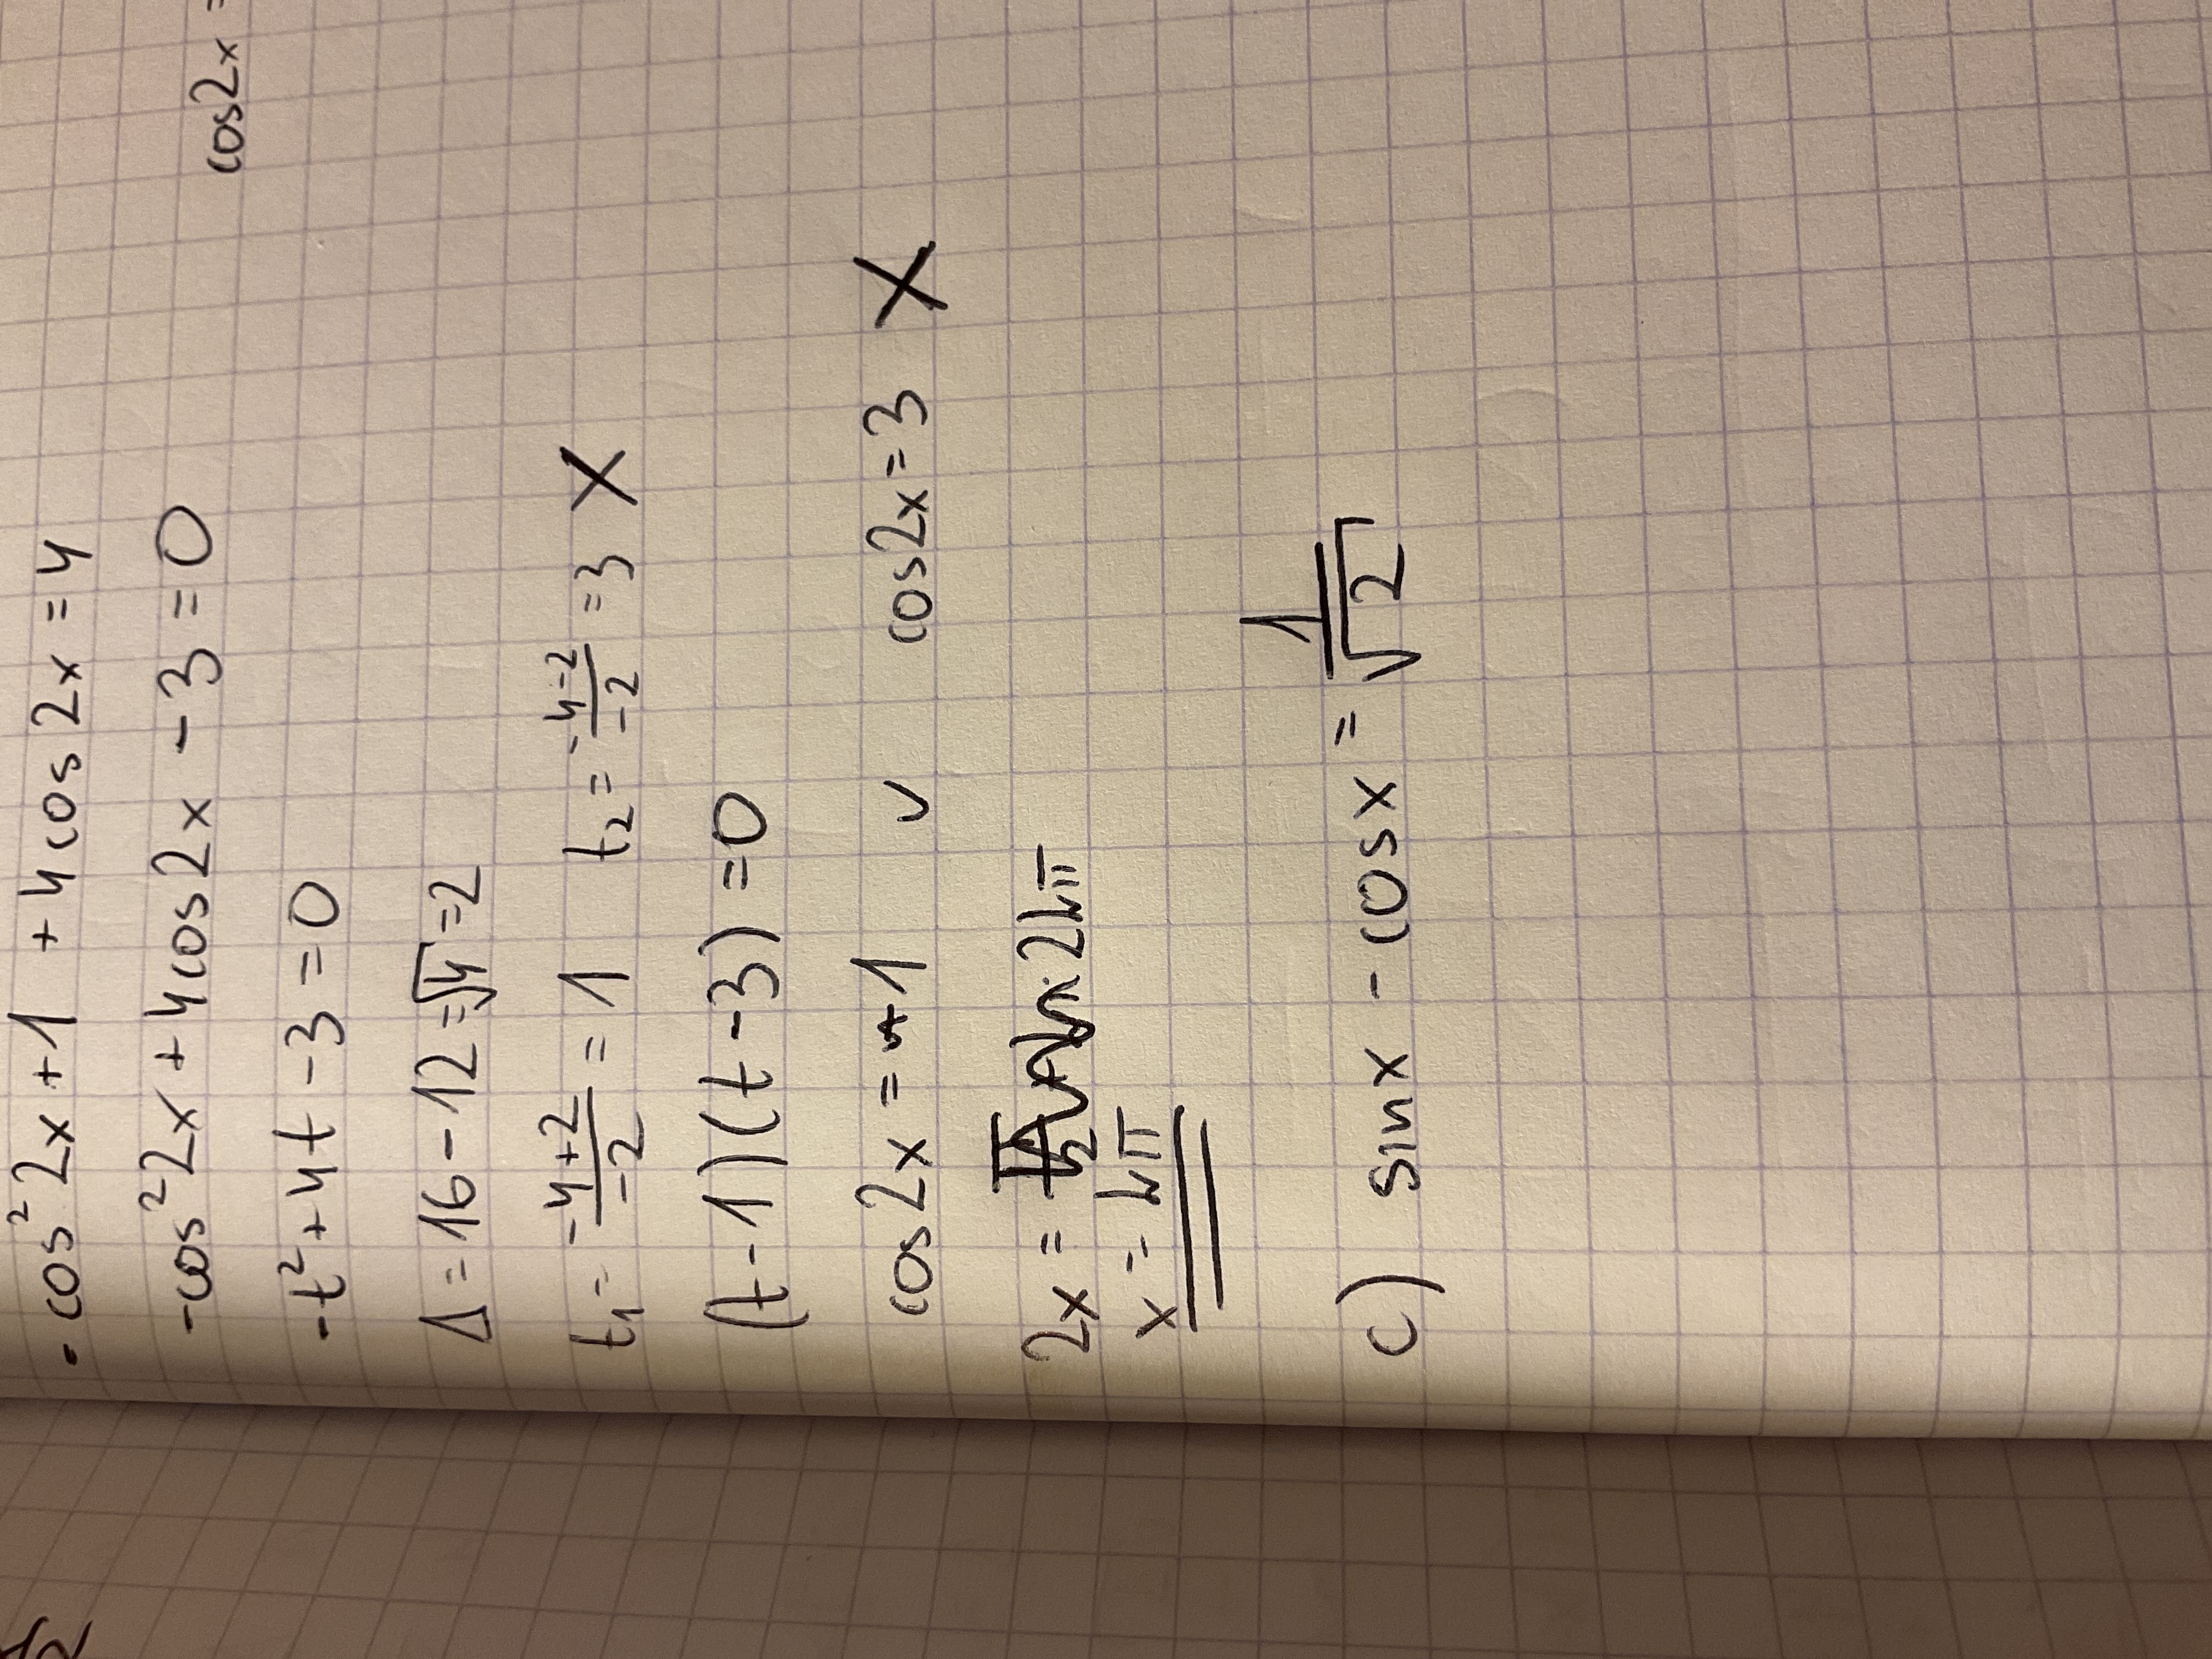 cos2x =
-cos²2x+1 + 4cos2x = 4
-cos²2x + 4cos2x - 3 = 0
-t² + 4t - 3 = 0
Δ = 16 - 12 = √4 = 2
t₁ = (-4+2)/(-2) = 1 t₂ = (-4-2)/(-2) = 3 X
(t-1)(t-3) = 0
cos2x = +1 ∨ cos2x = 3 X
2x = 2kπ
x = kπ
c) sinx - cosx = 1/√2